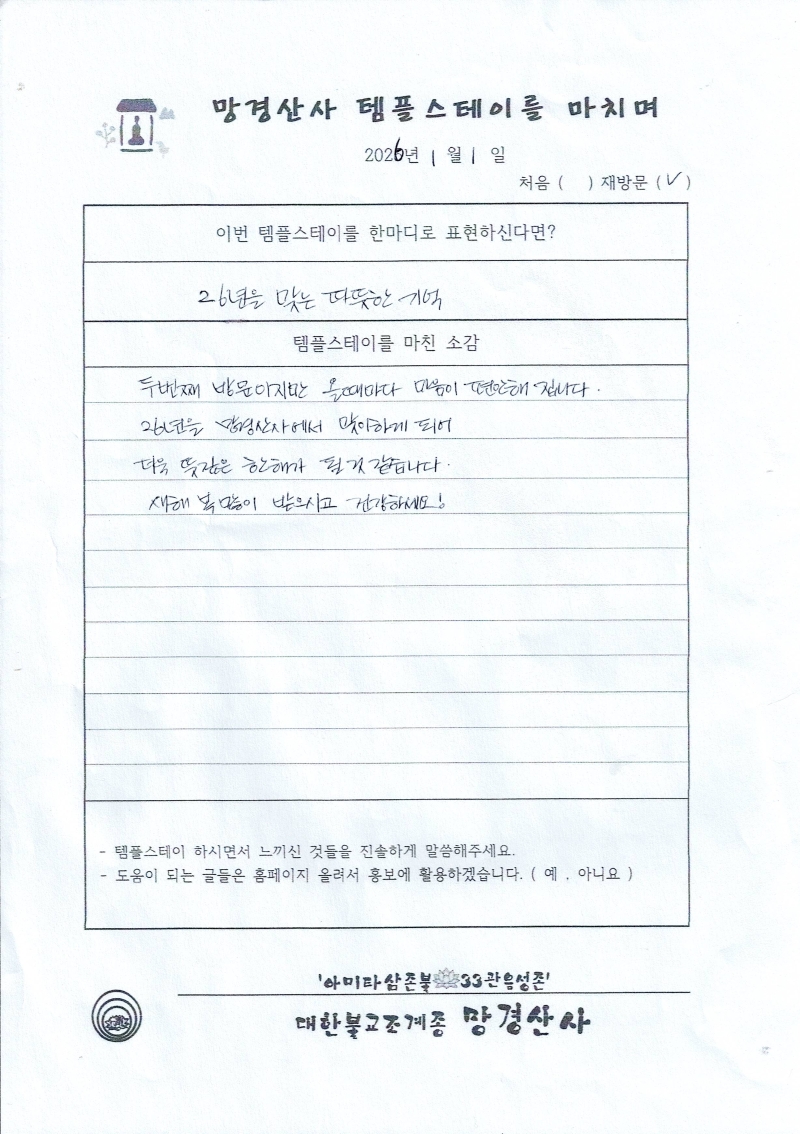 망경산사 템플스테이를 마치며
2026년 1 월 1 일
처음 ( ) 재방문 (✓)
이번 템플스테이를 한마디로 표현하신다면?
26년을 맞는 따뜻한 기억
템플스테이를 마친 소감
두번째 방문이지만 올때마다 마음이 편안해 집니다.
26년을 망경산사에서 맞이하게 되어
더욱 뜻깊은 한해가 될 것 같습니다.
새해 복 많이 받으시고 건강하세요!
- 템플스테이 하시면서 느끼신 것들을 진솔하게 말씀해주세요.
- 도움이 되는 글들은 홈페이지 올려서 홍보에 활용하겠습니다. ( 예 . 아니요 )
'아미타삼존불 33관음성존'
대한불교조계종 망경산사